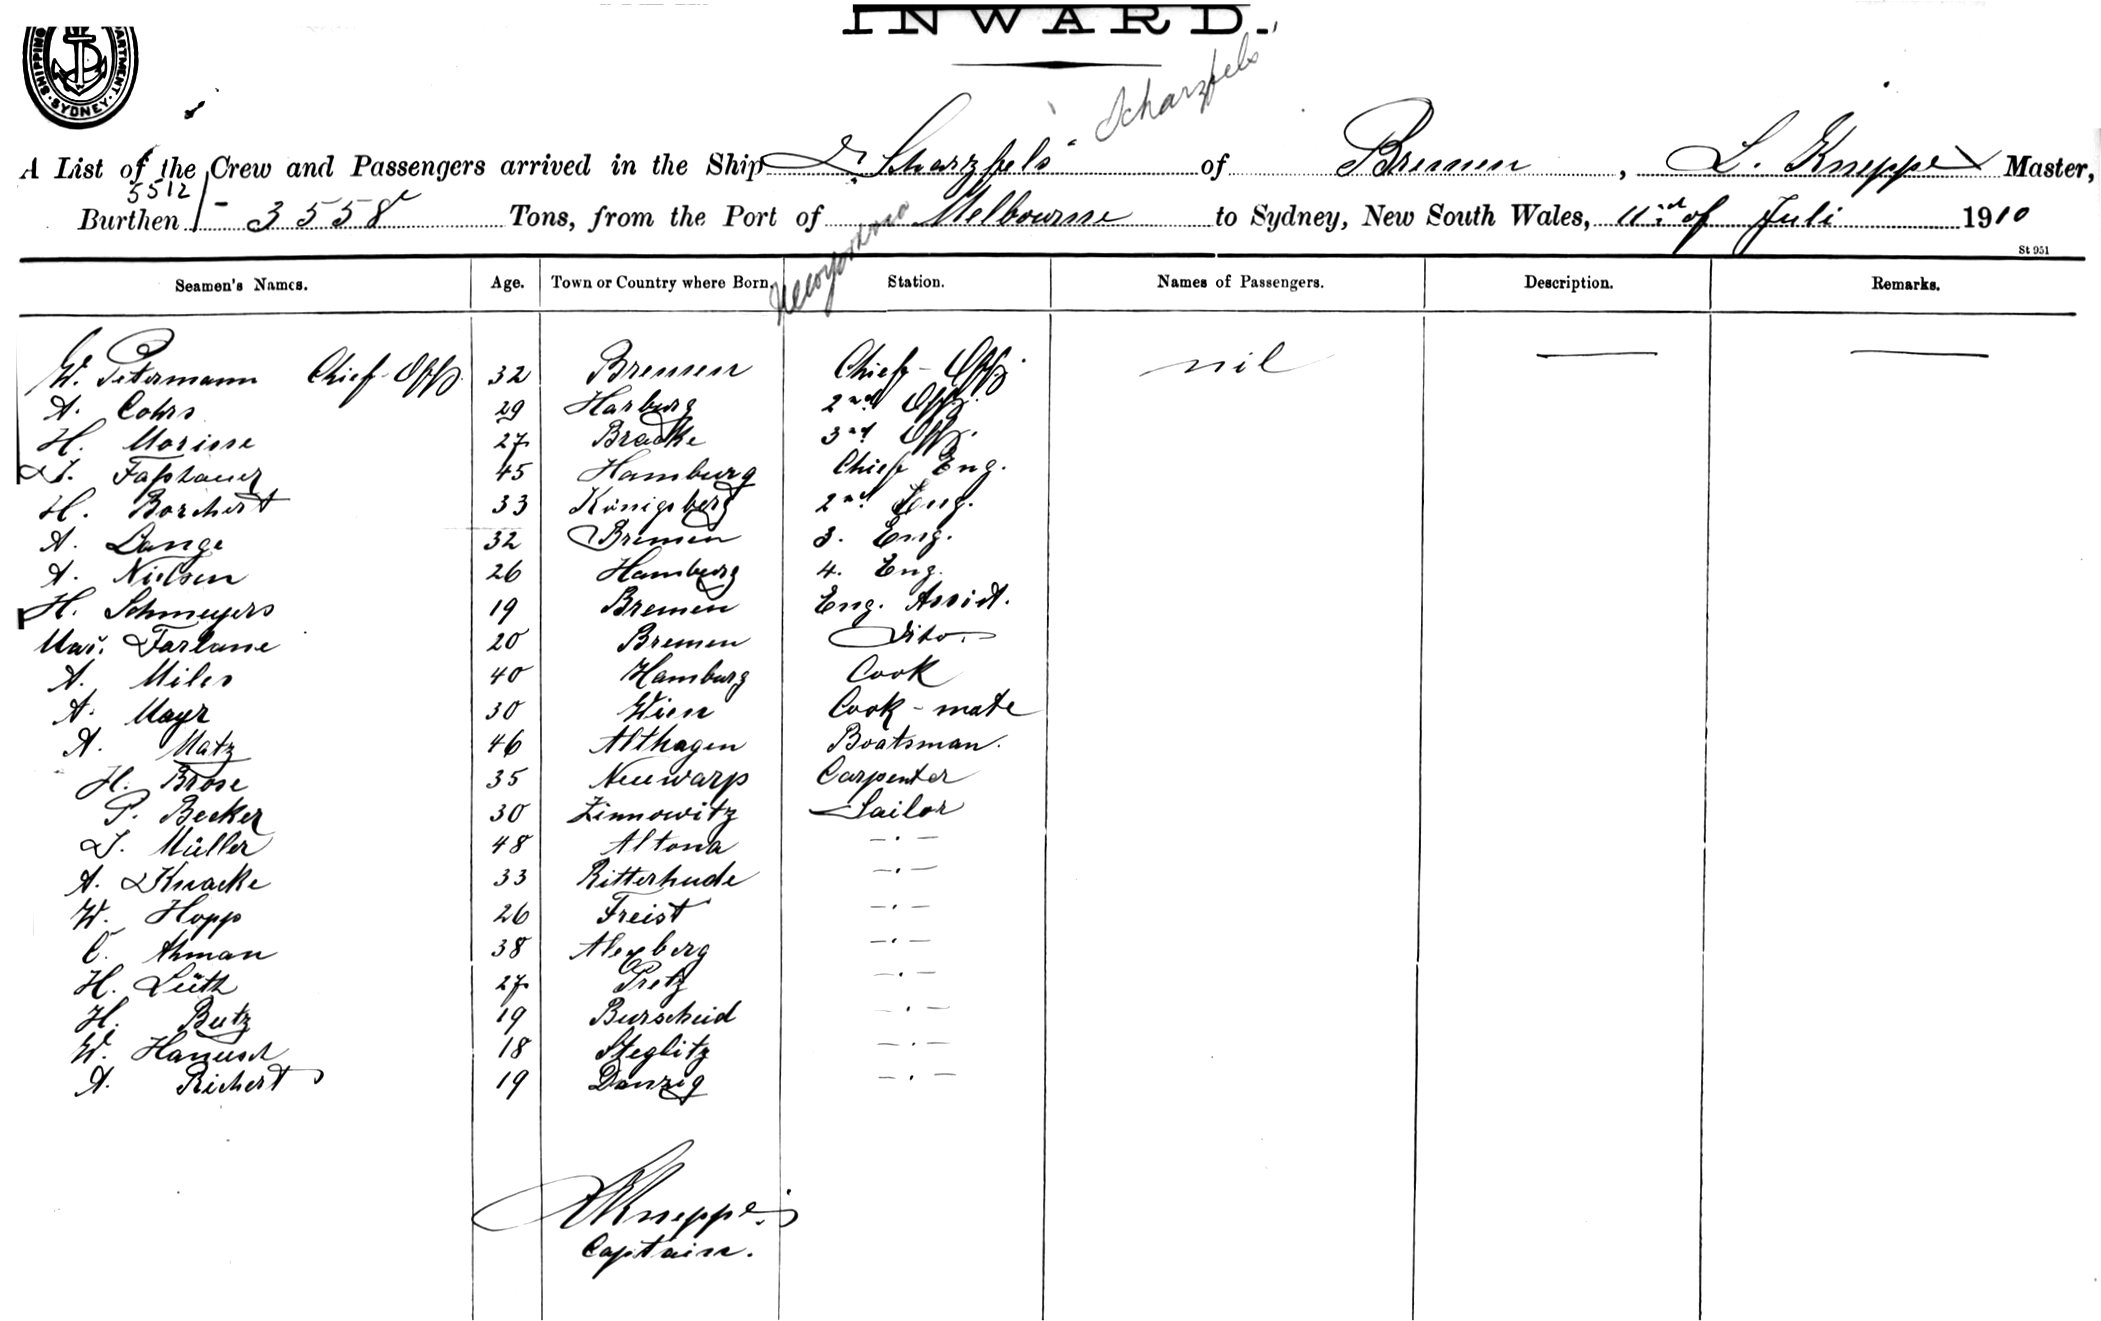 INWARD.
SHIPPING DEPARTMENT SYDNEY
Scharzfels
A List of the Crew and Passengers arrived in the Ship S. "Scharzfels" of Bremen, L. Kneppe Master,
5512
Burthen 3558 Tons, from the Port of Melbourne to Sydney, New South Wales, 11th of Juli 1910
St 951
Seamen's Names. Age. Town or Country where Born. Station. Names of Passengers. Description. Remarks.
W. Petermann Chief-Offz. 32 Bremen Chief-Offz. nil — —
A. Cohrs 29 Harburg 2nd Offz.
H. Morisse 27 Bracke 3rd Offz.
J. Faßhauer 45 Hamburg Chief Eng.
H. Borchert 33 Königsberg 2nd Eng.
A. Lange 32 Bremen 3. Eng.
A. Nielsen 26 Hamburg 4. Eng.
H. Schmeyers 19 Bremen Eng. Assist.
Farlane 20 Bremen Dito.
A. Miles 40 Hamburg Cook
A. Mayr 30 Wien Cook-mate
A. Matz 46 Althagen Boatsman.
H. Brose 35 Neuwarp Carpenter
P. Becker 30 Zinnowitz Sailor
J. Müller 48 Altona -.-
A. Knacke 33 Ritterhude -.-
W. Hopp 26 Freist -.-
C. Ahman 38 Alexberg -.-
H. Lüth 27 Pretz -.-
H. Butz 19 Burscheid -.-
W. Hanusch 18 Steglitz -.-
A. Richert 19 Danzig -.-
LKneppe.
Captain.